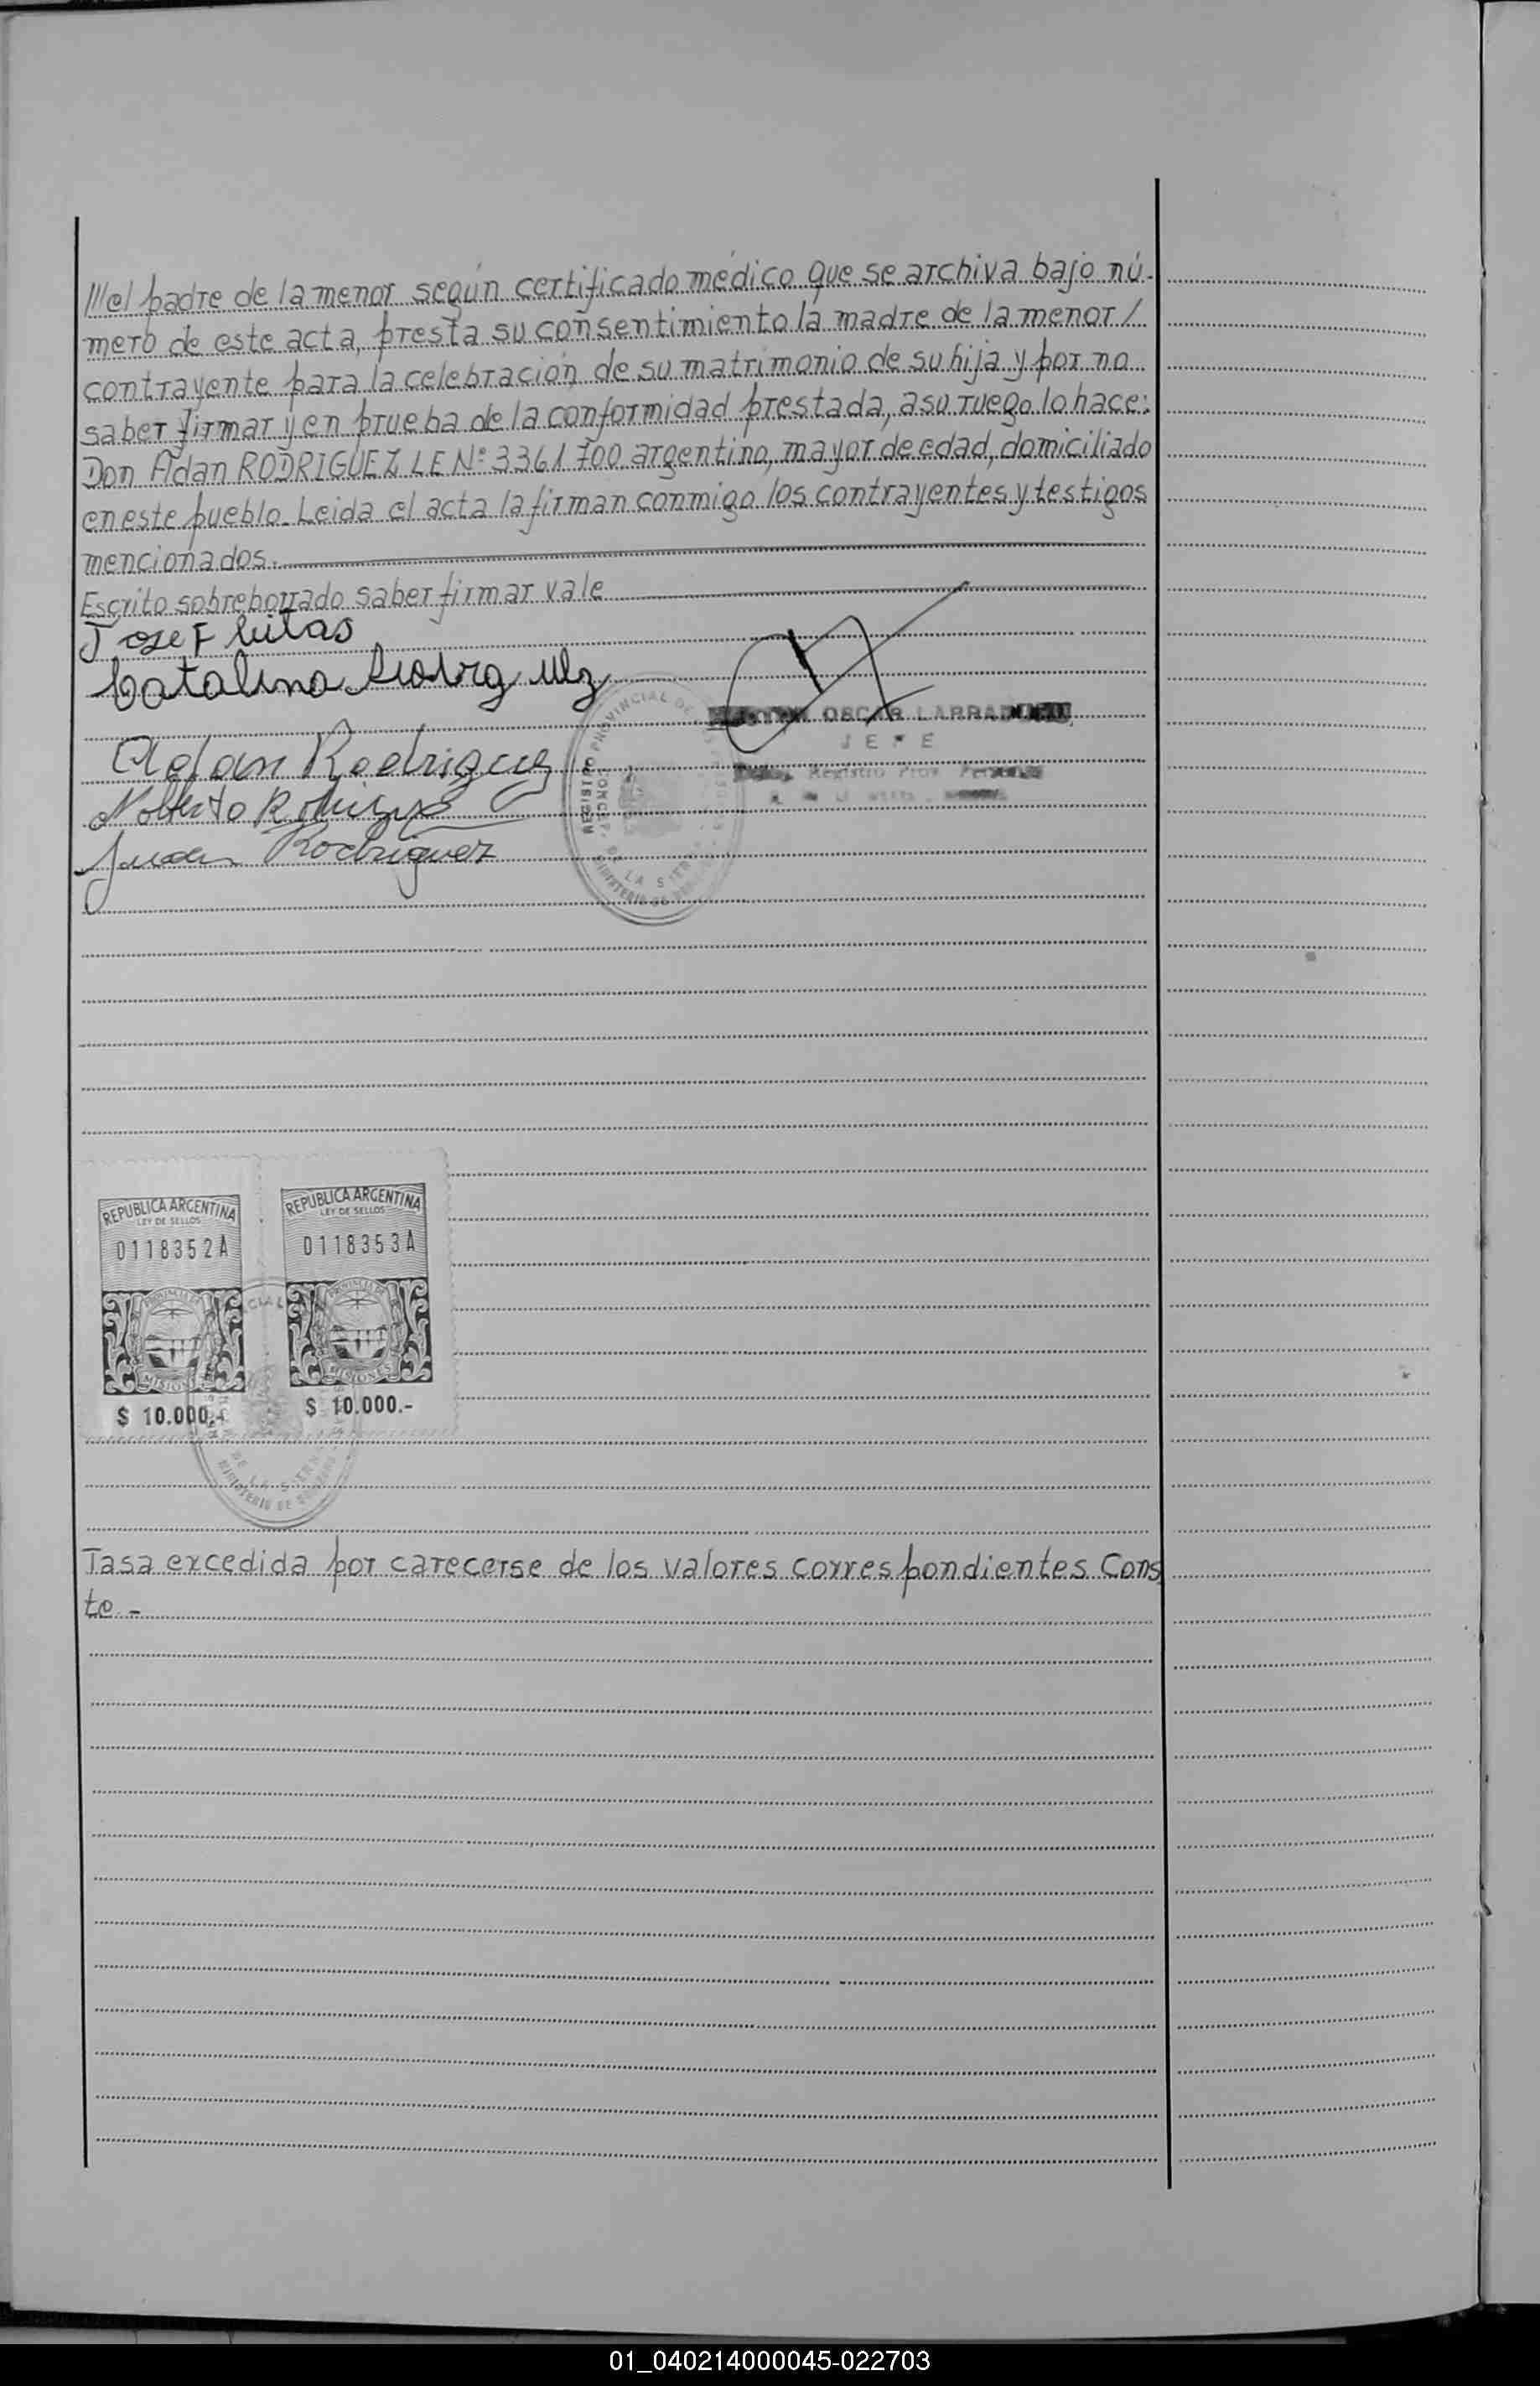 ///el padre de la menor según certificado médico que se archiva bajo nú-
mero de este acta, presta su consentimiento la madre de la menor /
contrayente para la celebración de su matrimonio de su hija y por no
saber firmar y en prueba de la conformidad prestada, a su ruego lo hace:
Don Adan RODRIGUEZ LE Nº 3361700 argentino, mayor de edad, domiciliado
en este pueblo. Leida el acta la firman conmigo los contrayentes y testigos
mencionados.
Escrito sobreborrado saber firmar vale
Jose F
Catalina
OSCAR
JEFE
Registro Prov
Adan Rodriguez
Norberto
Juan Rodriguez
PROVINCIAL DE
DE LA
MINISTERIO DE
REPUBLICA ARGENTINA
LEY DE SELLOS
0118352A
MISIONES
$ 10.000.-
REPUBLICA ARGENTINA
LEY DE SELLOS
0118353A
PROVINCIA DE
MISIONES
$ 10.000.-
DE LA
MINISTERIO DE
Tasa excedida por carecerse de los valores correspondientes Cons
te.-
01_040214000045-022703